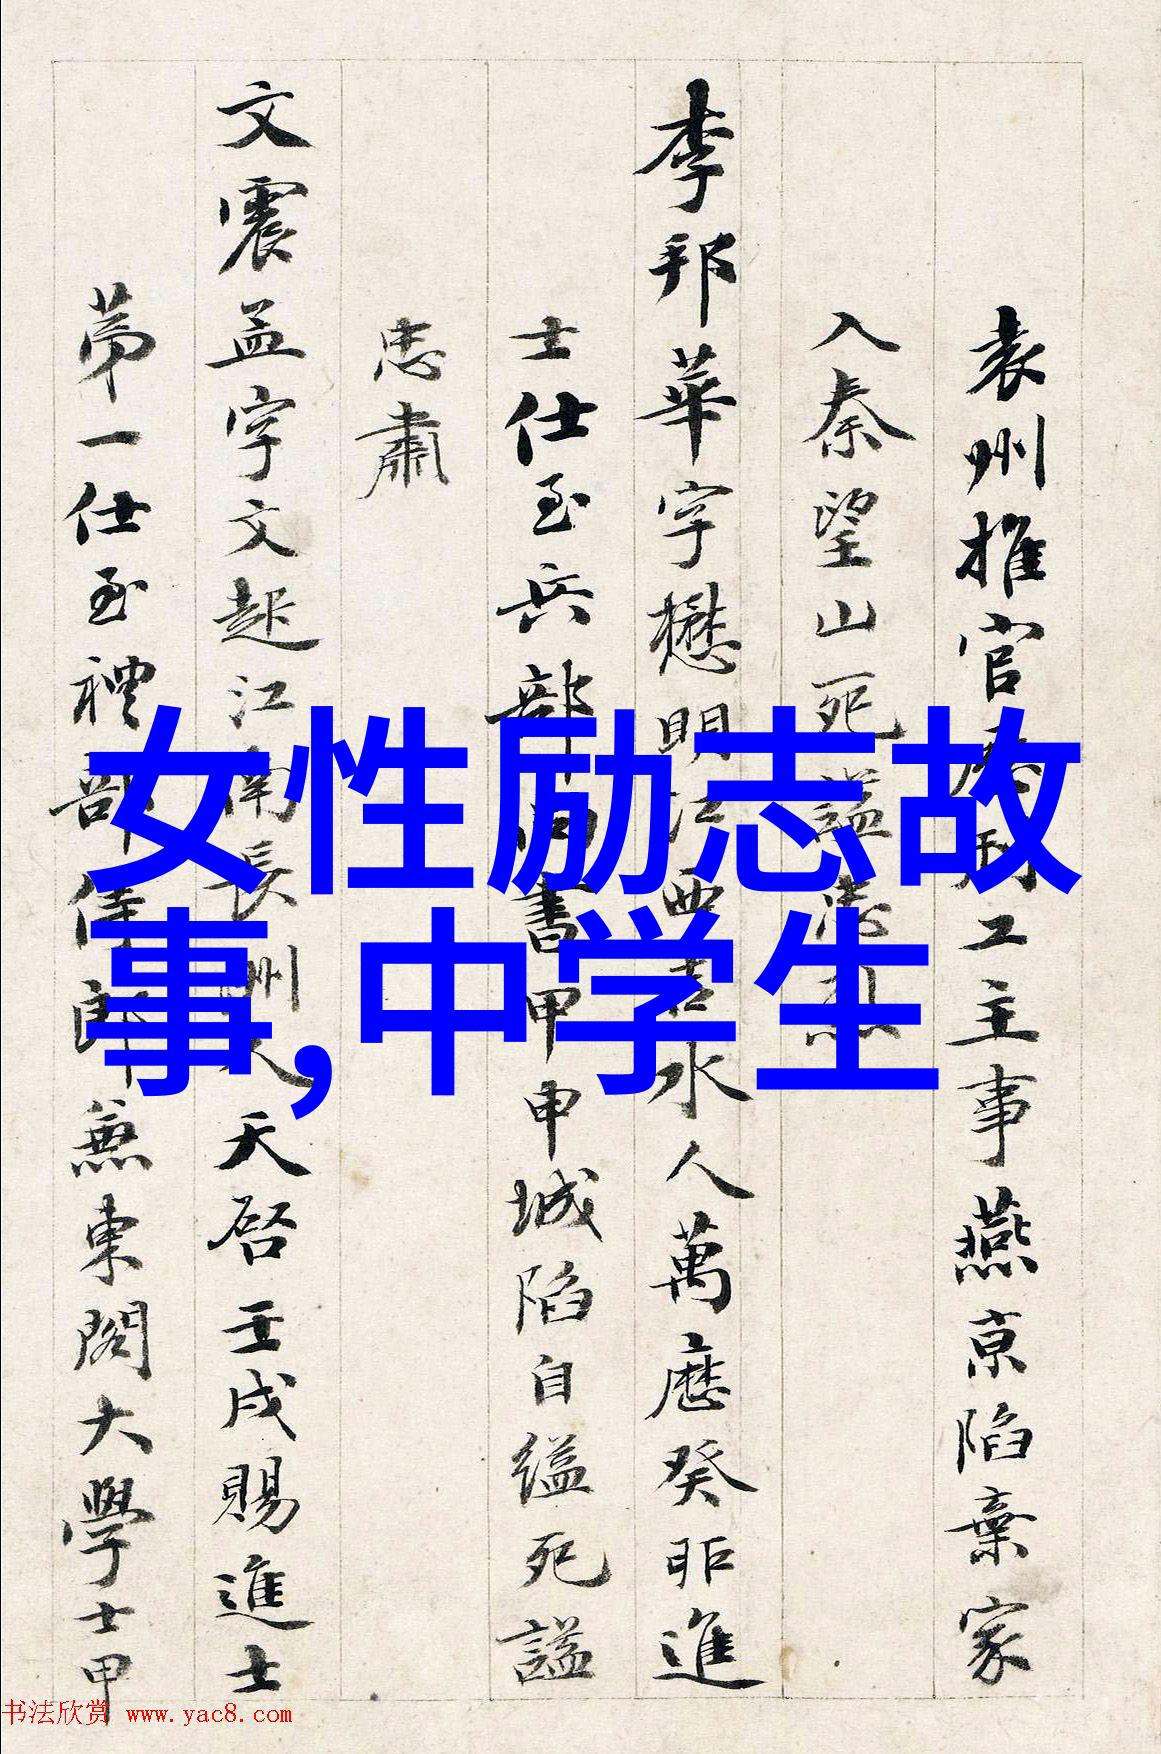 袁州推官 工主事燕京陷棄家
入秦望山死謚
李邦華字懋明江西吉水人萬曆癸卯進
士仕至兵部尚書甲申城陷自縊死謚
忠肅
文震孟字文起江南長洲人天啓壬戌賜進士
第一仕至禮部侍郎兼東閣大學士甲
女性励志故
事,中学生
书法欣赏 www.yac8.com